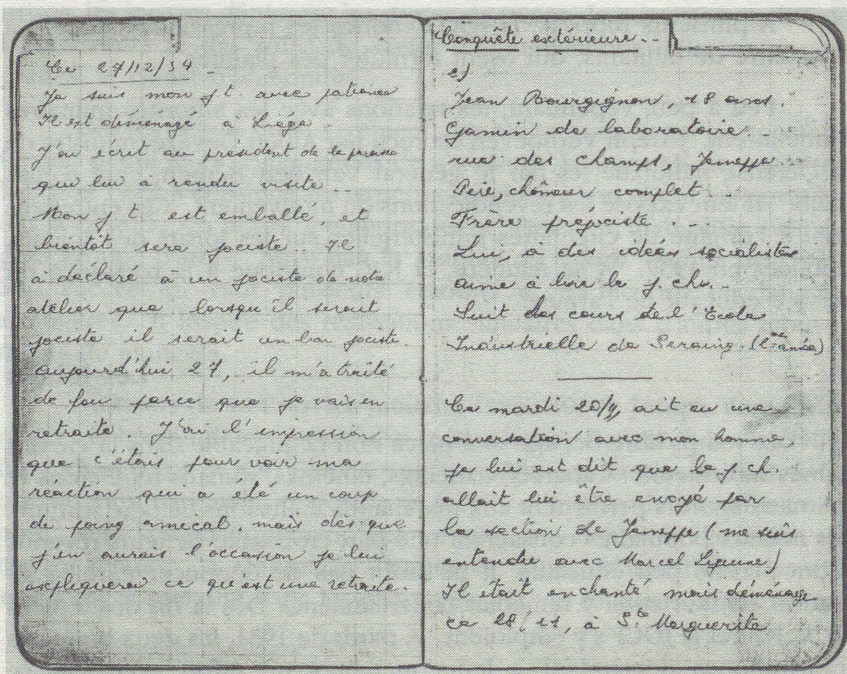 Ce 27/12/34
Je suis mon j t. avec patience
Il est déménagé à Liège
J'ai écrit au président de la paroisse
qui lui à rendu visite
Mon j t. est emballé, et
bientôt sera jociste. Il
à déclaré à un jociste de notre
atelier que lorsqu'il serait
jociste il serait un bon jociste.
aujourd'hui 27, il m'a traité
de fou parce que je vais en
retraite. J'ai l'impression
que c'étais pour voir ma
réaction qui a été un coup
de poing amical, mais dès que
j'en aurais l'occasion je lui
expliquerai ce qu'est une retraite.
Conquête extérieure...
e)
Jean Bourgignon, 18 ans.
Gamin de laboratoire.
rue des champs, Jemeppe...
Père, chômeur complet.
Frère préjociste...
Lui, à des idées socialistes
aime à lire la j. chr.
Suit des cours de l'Ecole
Industrielle de Seraing. (2me année)
Ce mardi 20/9, ait eu une
conversation avec mon homme,
je lui est dit que la j. ch.
allait lui être envoyé par
la section de Jemeppe (me suis
entendu avec Marcel Lejeune)
Il était enchanté mais déménage
ce 28/11, à Ste Marguerite